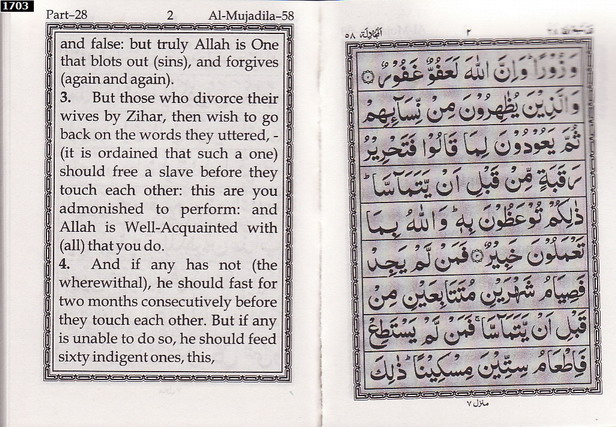 1703
Part–28 2 Al-Mujadila–58
and false: but truly Allah is One
that blots out (sins), and forgives
(again and again).
3. But those who divorce their
wives by Zihar, then wish to go
back on the words they uttered, -
(it is ordained that such a one)
should free a slave before they
touch each other: this are you
admonished to perform: and
Allah is Well-Acquainted with
(all) that you do.
4. And if any has not (the
wherewithal), he should fast for
two months consecutively before
they touch each other. But if any
is unable to do so, he should feed
sixty indigent ones, this,
المجادلة ٥٨ ٢
وَزُوْرًا ؕ وَاِنَّ اللّٰهَ لَعَفُوٌّ غَفُوْرٌ
وَالَّذِيْنَ يُظٰهِرُوْنَ مِنْ نِّسَآئِهِمْ
ثُمَّ يَعُوْدُوْنَ لِمَا قَالُوْا فَتَحْرِيْرُ
رَقَبَةٍ مِّنْ قَبْلِ اَنْ يَّتَمَآسَّا ؕ
ذٰلِكُمْ تُوْعَظُوْنَ بِهٖ ؕ وَاللّٰهُ بِمَا
تَعْمَلُوْنَ خَبِيْرٌ فَمَنْ لَّمْ يَجِدْ
فَصِيَامُ شَهْرَيْنِ مُتَتَابِعَيْنِ مِنْ
قَبْلِ اَنْ يَّتَمَآسَّا ۚ فَمَنْ لَّمْ يَسْتَطِعْ
فَاِطْعَامُ سِتِّيْنَ مِسْكِيْنًا ؕ ذٰلِكَ
منزل ٧